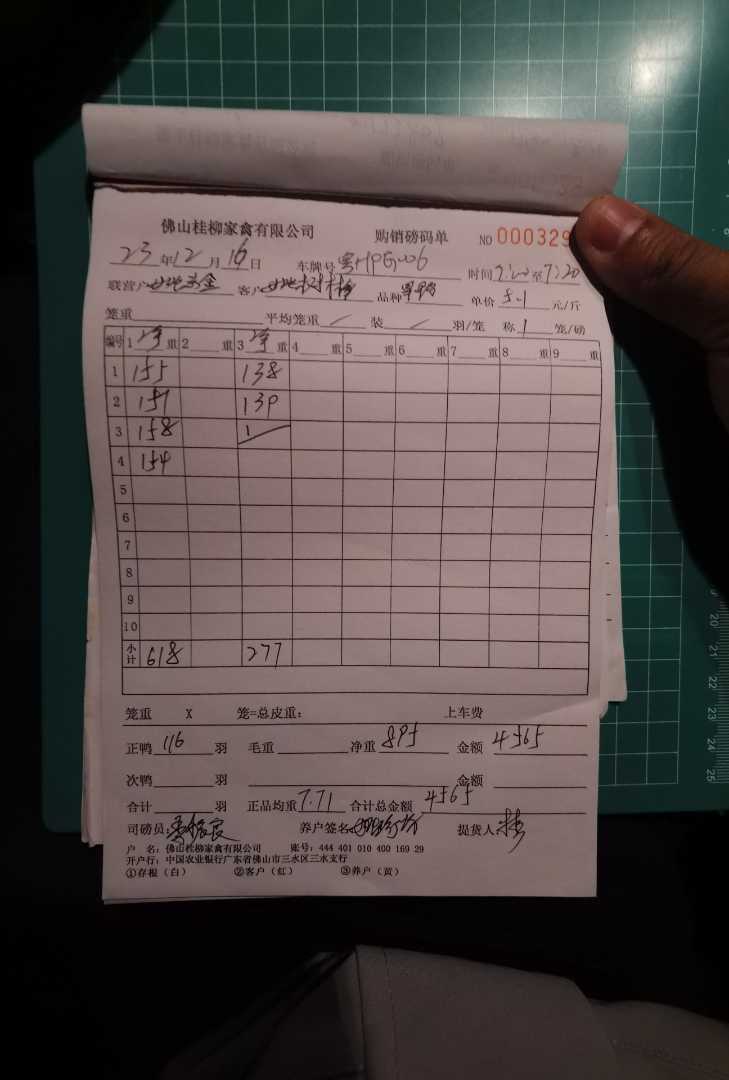 佛山桂柳家禽有限公司 购销磅码单 NO 000329
23年12月16日 车牌号粤HPG006 时间7:00至7:20
联营户 客户 品种 单价5.1元/斤
笼重 平均笼重/ 装/羽/笼 称1笼/磅
编号 1净重 2重 3净重 4重 5重 6重 7重 8重 9重
1 155 138
2 151 139
3 158 /
4 154
5
6
7
8
9
10
小计 618 277
笼重 X 笼=总皮重: 上车费
正鸭116羽 毛重 净重895 金额4565
次鸭羽 金额
合计羽 正品均重7.71 合计总金额4565
司磅员: 养户签名 提货人
户 名: 佛山桂柳家禽有限公司 账号: 444 401 010 400 169 29
开户行: 中国农业银行广东省佛山市三水区三水支行
①存根(白) ②客户(红) ③养户(黄)
20
21
22
23
24
25